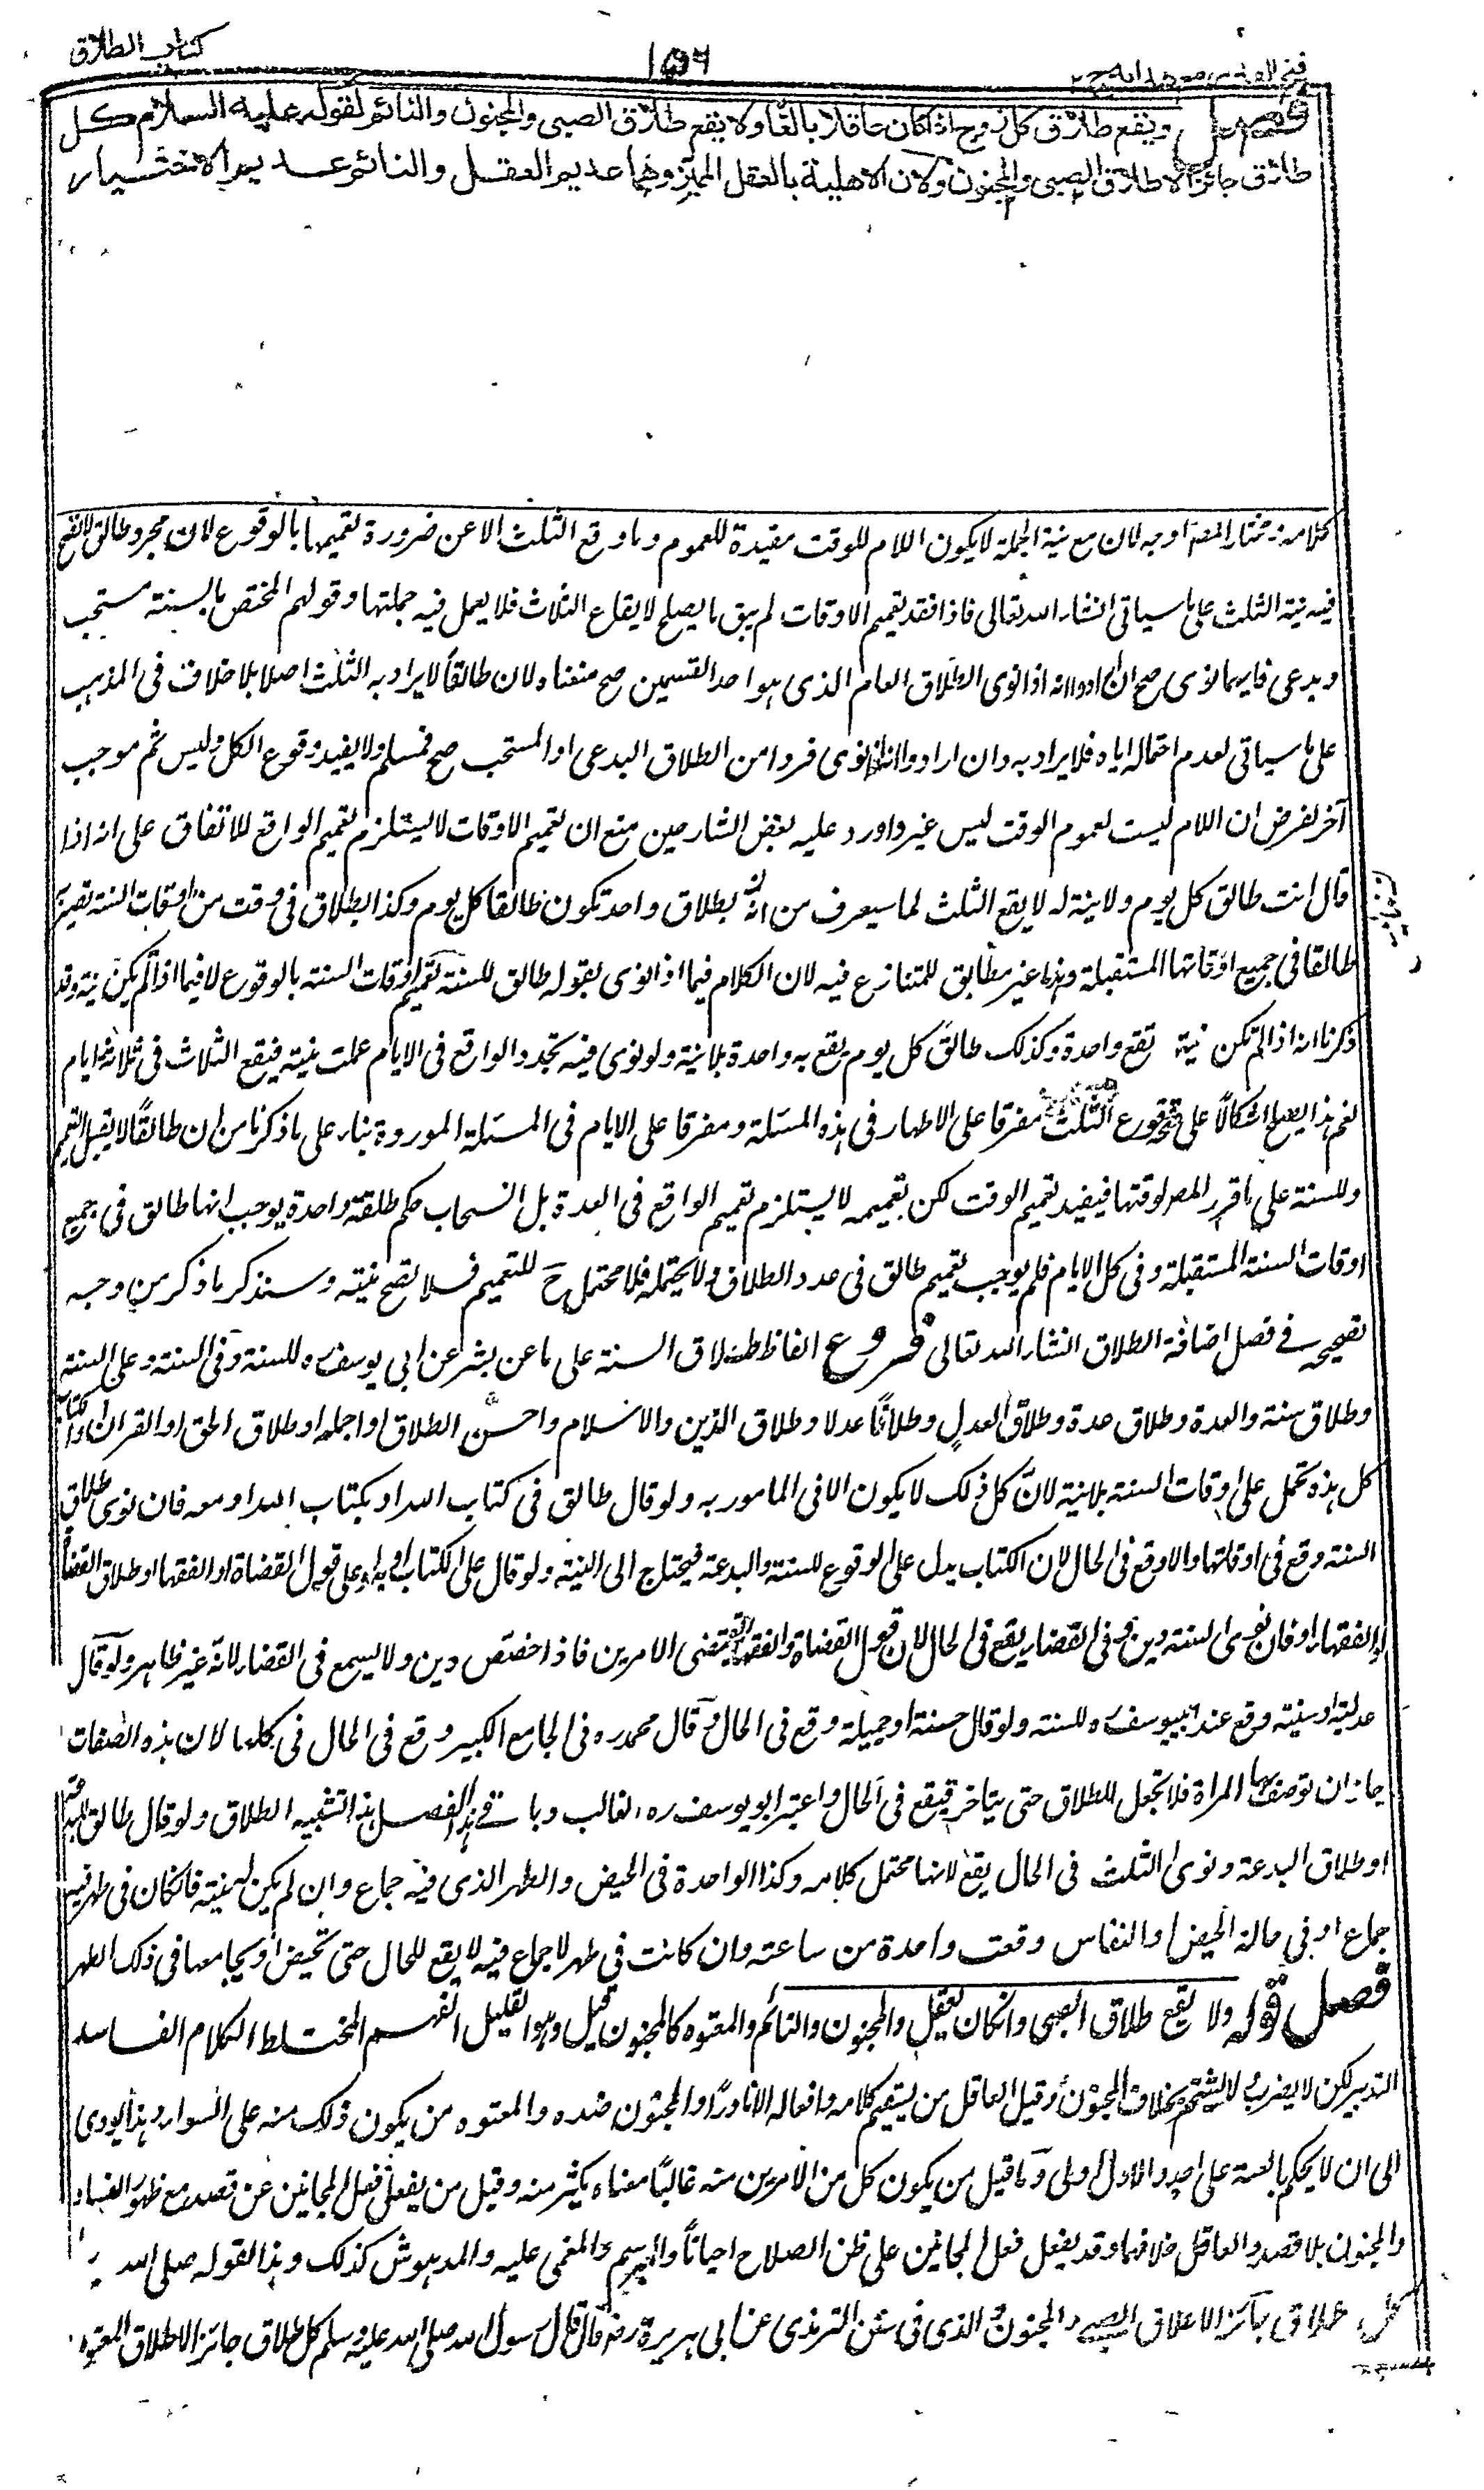 كتاب الطلاق
١٥٦
فتح القدير مع هدايه ج ٢
فصل ويقع طلاق كل زوج اذا كان عاقلا بالغا ولا يقع طلاق الصبى والمجنون والنائم لقوله عليه السلام كل
طلاق جائز الا طلاق الصبى والمجنون ولان الاهلية بالعقل المميز وهما عديم العقل والنائم عديم الاختيار
كلامه مختار المصـ اوجه لان مع نية الجملة لا يكون اللام للوقت مفيدة للعموم وما وقع الثلث الا عن ضرورة تعميمها بالوقوع لان مجرد طالق لا تصح
فيه نية الثلث على ما سياتى انشاء الله تعالى فاذا فقد تعميم الاوقات لم يبق ما يصلح لايقاع الثلاث فلا يعمل فيه جملتها وقولهم المختص بالسنة مستحب
وبدعى فايهما نوى صح ان ارادوا انه اذا نوى الطلاق العام الذى هو احد القسمين صح منعناه لان طالقا لا يراد به الثلث اصلا بلا خلاف فى المذهب
على ما سياتى لعدم احتماله اياه فلا يراد به وان ارادوا انه اذا نوى فردا من الطلاق البدعى او المستحب صح فمسلم ولا يفيد وقوع الكل وليس ثم موجب
آخر لفرض ان اللام ليست لعموم الوقت ليس غير واورد عليه بعض الشارحين منع ان تعميم الاوقات لا يستلزم تعميم الواقع للاتفاق على انه اذا
قال انت طالق كل يوم ولا نية له لا يقع الثلث لما سيعرف من انه بطلاق واحد تكون طالقا كل يوم وكذا بطلاق فى وقت من اوقات السنة تصير
طالقا فى جميع اوقاتها المستقبلة وهذا غير مطابق للمتنازع فيه لان الكلام فيما اذا نوى بقوله طالق للسنة تعميم اوقات السنة بالوقوع لا فيما اذا لم يكن نية وقد
ذكرنا انه اذا لم تكن نية تقع واحدة وكذلك طالق كل يوم يقع به واحدة بلا نية ولو نوى فيه تجدد الواقع فى الايام عملت نيته فيقع الثلاث فى ثلاثة ايام
نعم هذا يصلح اشكالا على وقوع الثلث مفرقا على الاطهار فى هذه المسئلة ومفرقا على الايام فى المسئلة الموردة بناء على ما ذكرنا من ان طالقا لا يقبل التعميم
وللسنة على ما قرر المصـ لوقتها فيفيد تعميم الوقت لكن تعميمه لا يستلزم تعميم الواقع فى العدة بل انسحاب حكم طلقة واحدة يوجب انها طالق فى جميع
اوقات السنة المستقبلة وفى كل الايام فلم يوجب تعميم طالق فى عدد الطلاق ولا يحتمله فلا محتمل ح للتعميم فلا تصح نيته وسنذكر ما ذكر من وجه
تصحيحه فى فصل اضافة الطلاق انشاء الله تعالى فروع الفاظ طلاق السنة على ما عن بشر عن ابى يوسف ره للسنة وفى السنة وعلى السنة
وطلاق سنة والعدة وطلاق عدة وطلاق العدل وطلاقا عدلا وطلاق الدين والاسلام واحسن الطلاق او اجمله او طلاق الحق او القران او الكتاب
كل هذه تحمل على اوقات السنة بلا نية لان كل ذلك لا يكون الا فى المامور به ولو قال طالق فى كتاب الله او بكتاب الله او معه فان نوى طلاق
السنة وقع فى اوقاتها والا وقع فى الحال لان الكتاب يدل على الوقوع للسنة والبدعة فيحتاج الى النية ولو قال على الكتاب او به او على قول القضاة او الفقها او طلاق القضاة
او الفقهاء فان نوى السنة دين وفى القضاء يقع فى الحال لان قول القضاة والفقهاء يقتضى الامرين فاذا خصص دين ولا يسمع فى القضاء لانه غير ظاهر ولو قال
عدلية او سنية وقع عند ابيوسف ره للسنة ولو قال حسنة او جميلة وقع فى الحال وقال محمد ره فى الجامع الكبير وقع فى الحال فى كليهما لان هذه الصفات
جاز ان توصف بها المراة فلا تجعل للطلاق حتى يتاخر فيقع فى الحال واعتبر ابو يوسف ره الغالب وباقى هذا الفصل هذا تشبيه الطلاق ولو قال طالق للبدعة
او طلاق البدعة ونوى الثلث فى الحال يقع لانها محتمل كلامه وكذا الواحدة فى الحيض والطهر الذى فيه جماع وان لم يكن له نية فان كان فى طهر فيه
جماع او فى حالة الحيض او النفاس وقعت واحدة من ساعته وان كانت فى طهر لا جماع فيه لا يقع للحال حتى تحيض او يجامعها فى ذلك الطهر
فصل قوله ولا يقع طلاق الصبى وان كان يعقل والمجنون والنائم والمعتوه كالمجنون قيل وهو القليل الفهم المختلط الكلام الفاسد
التدبير لكن لا يضرب ولا يشتم بخلاف المجنون وقيل العاقل من يستقيم كلامه وافعاله الا نادرا والمجنون ضده والمعتوه من يكون ذلك منه على السواء وهذا يودى
الى ان لا يحكم بالعته على احد والاول اولى وما قيل من يكون كل من الامرين منه غالبا معناه يكثر منه وقيل من يفعل فعل المجانين عن قصد مع ظهور الفساد
والمجنون بلا قصد والعاقل خلافهما وقد يفعل فعل المجانين على ظن الصلاح احيانا والمبرسم والمغمى عليه والمدهوش كذلك وهذا لقوله صلى الله
كل طلاق جائز الا طلاق الصبى والمجنون الذى فى سنن الترمذى عن ابى هريرة رضـ قال قال رسول الله صلى الله عليه وسلم كل طلاق جائز الا طلاق المعتوه